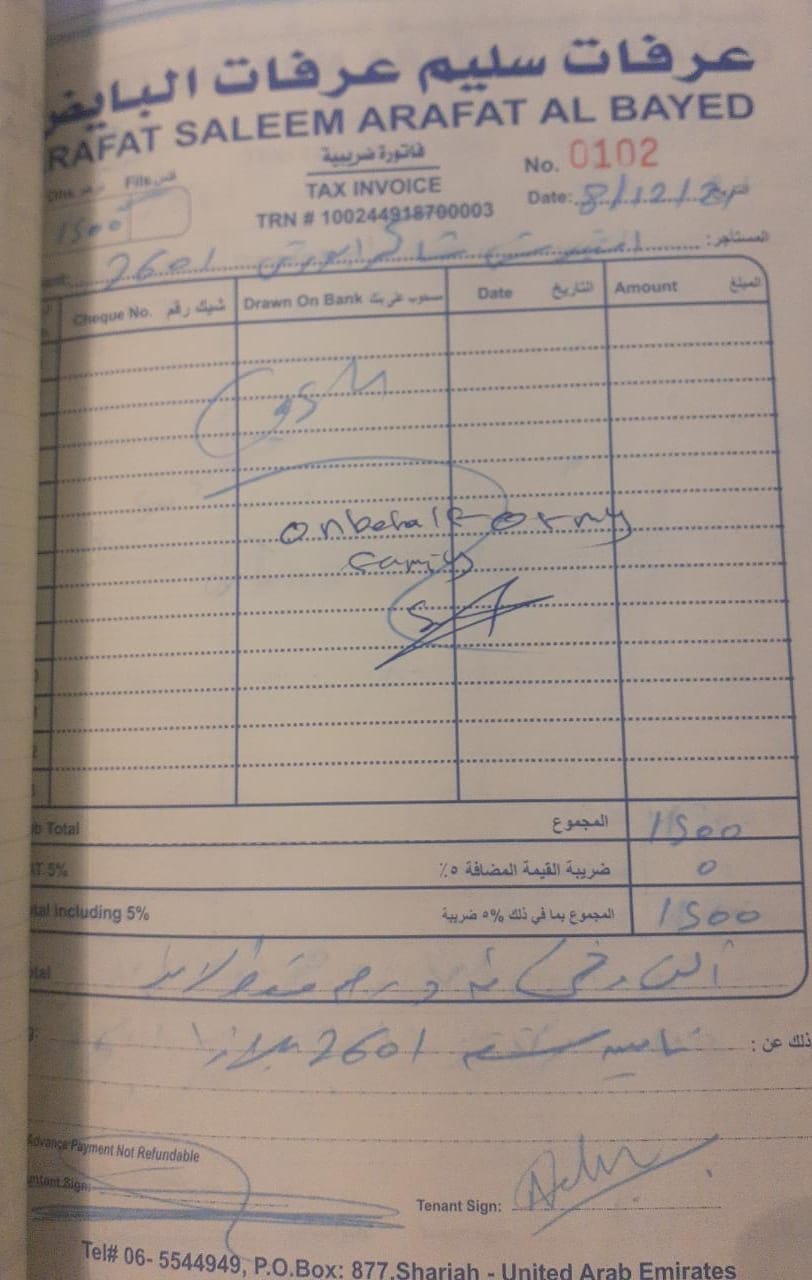 عرفات سليم عرفات البايض
RAFAT SALEEM ARAFAT AL BAYED
فاتورة ضريبية
No. 0102
TAX INVOICE
TRN # 100244918700003
Date: 8/12/21
1500
المستاجر:
2601
Cheque No. شيك رقم Drawn On Bank مسحوب على بنك Date التاريخ Amount المبلغ
Cash
on behalf of my
family
b Total المجموع 1500
AT 5% ضريبة القيمة المضافة ٥٪ 0
tal including 5% المجموع بما في ذلك ٥% ضريبة 1500
otal درهم فقط لا
ذلك عن : تامين 2601
Advance Payment Not Refundable
untant Sign:
Tenant Sign:
Tel# 06- 5544949, P.O.Box: 877,Sharjah - United Arab Emirates